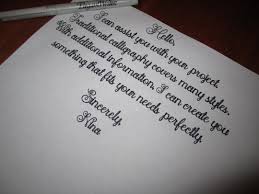 Hello,
I can assist you with your project.
Traditional calligraphy covers many styles.
With additional information, I can create you
something that fits your needs perfectly.
Sincerely,
Nina